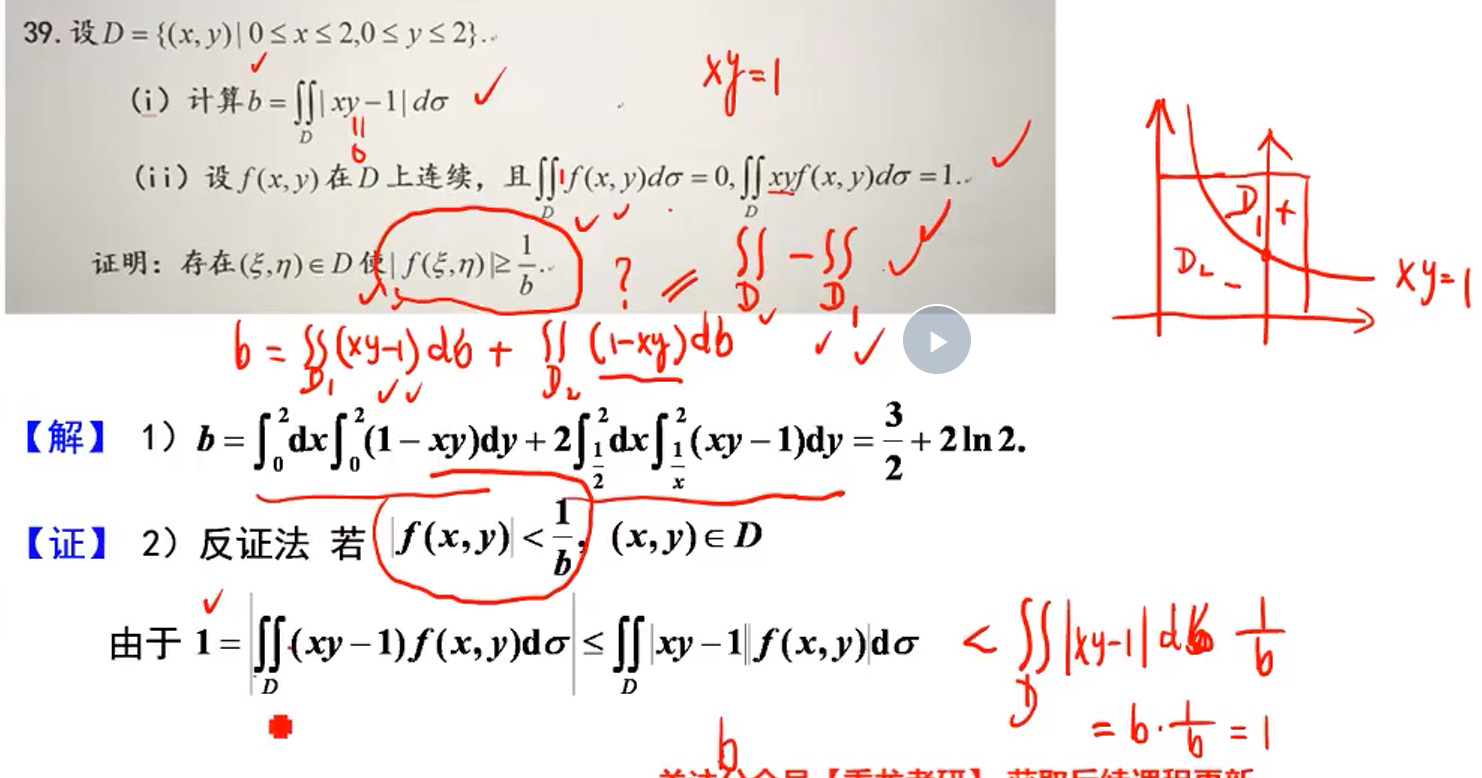 39. 设 D = {(x, y) | 0 ≤ x ≤ 2, 0 ≤ y ≤ 2}.
xy=1
(i) 计算 b = ∬_D | xy − 1 | dσ
(ii) 设 f(x, y) 在 D 上连续，且 ∬_D f(x, y)dσ = 0, ∬_D xyf(x, y)dσ = 1.
证明：存在 (ξ, η) ∈ D 使 | f(ξ, η) | ≥ 1/b.
? = ∬_D − ∬_D₁
D₁ +
D₂ −
xy=1
b = ∬_D₁ (xy−1) dσ + ∬_D₂ (1−xy) dσ
【解】 1）b = ∫_0^2 dx ∫_0^2 (1 − xy)dy + 2∫_{1/2}^2 dx ∫_{1/x}^2 (xy − 1)dy = 3/2 + 2 ln 2.
【证】 2）反证法 若 |f(x, y)| < 1/b, (x, y) ∈ D
由于 1 = |∬_D (xy − 1) f(x, y)dσ| ≤ ∬_D |xy − 1||f(x, y)|dσ < ∬_D |xy−1| dσ 1/b
= b · 1/b = 1
b